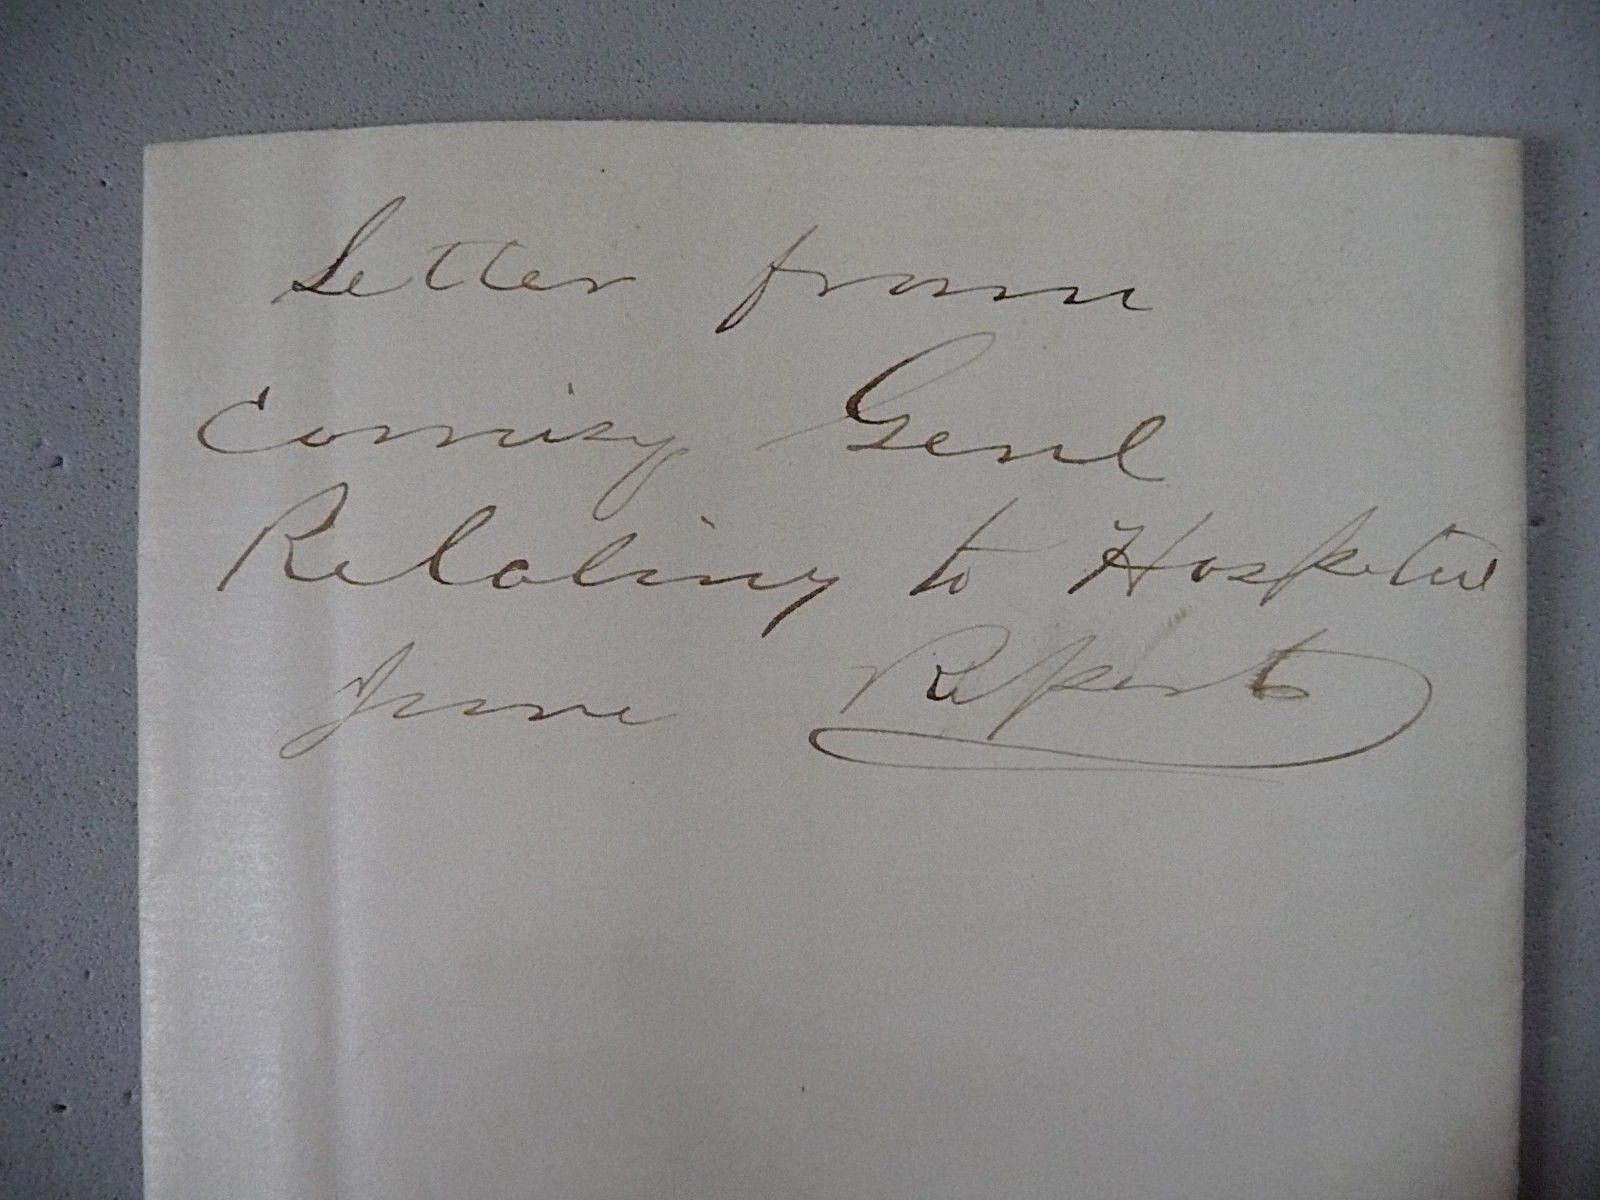 Letter from
Comisy Genl
Relating to Hospital
June Report